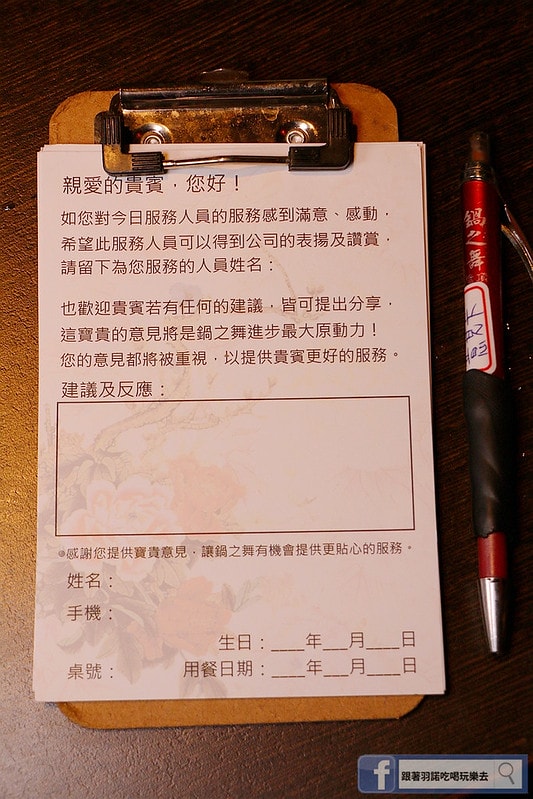 親愛的貴賓，您好！
如您對今日服務人員的服務感到滿意、感動，
希望此服務人員可以得到公司的表揚及讚賞，
請留下為您服務的人員姓名：
也歡迎貴賓若有任何的建議，皆可提出分享，
這寶貴的意見將是鍋之舞進步最大原動力！
您的意見都將被重視，以提供貴賓更好的服務。
建議及反應：
◎感謝您提供寶貴意見，讓鍋之舞有機會提供更貼心的服務。
姓名：
手機：
生日：____年___月____日
桌號：
用餐日期：____年___月____日
鍋之舞
f 跟著羽諾吃喝玩樂去